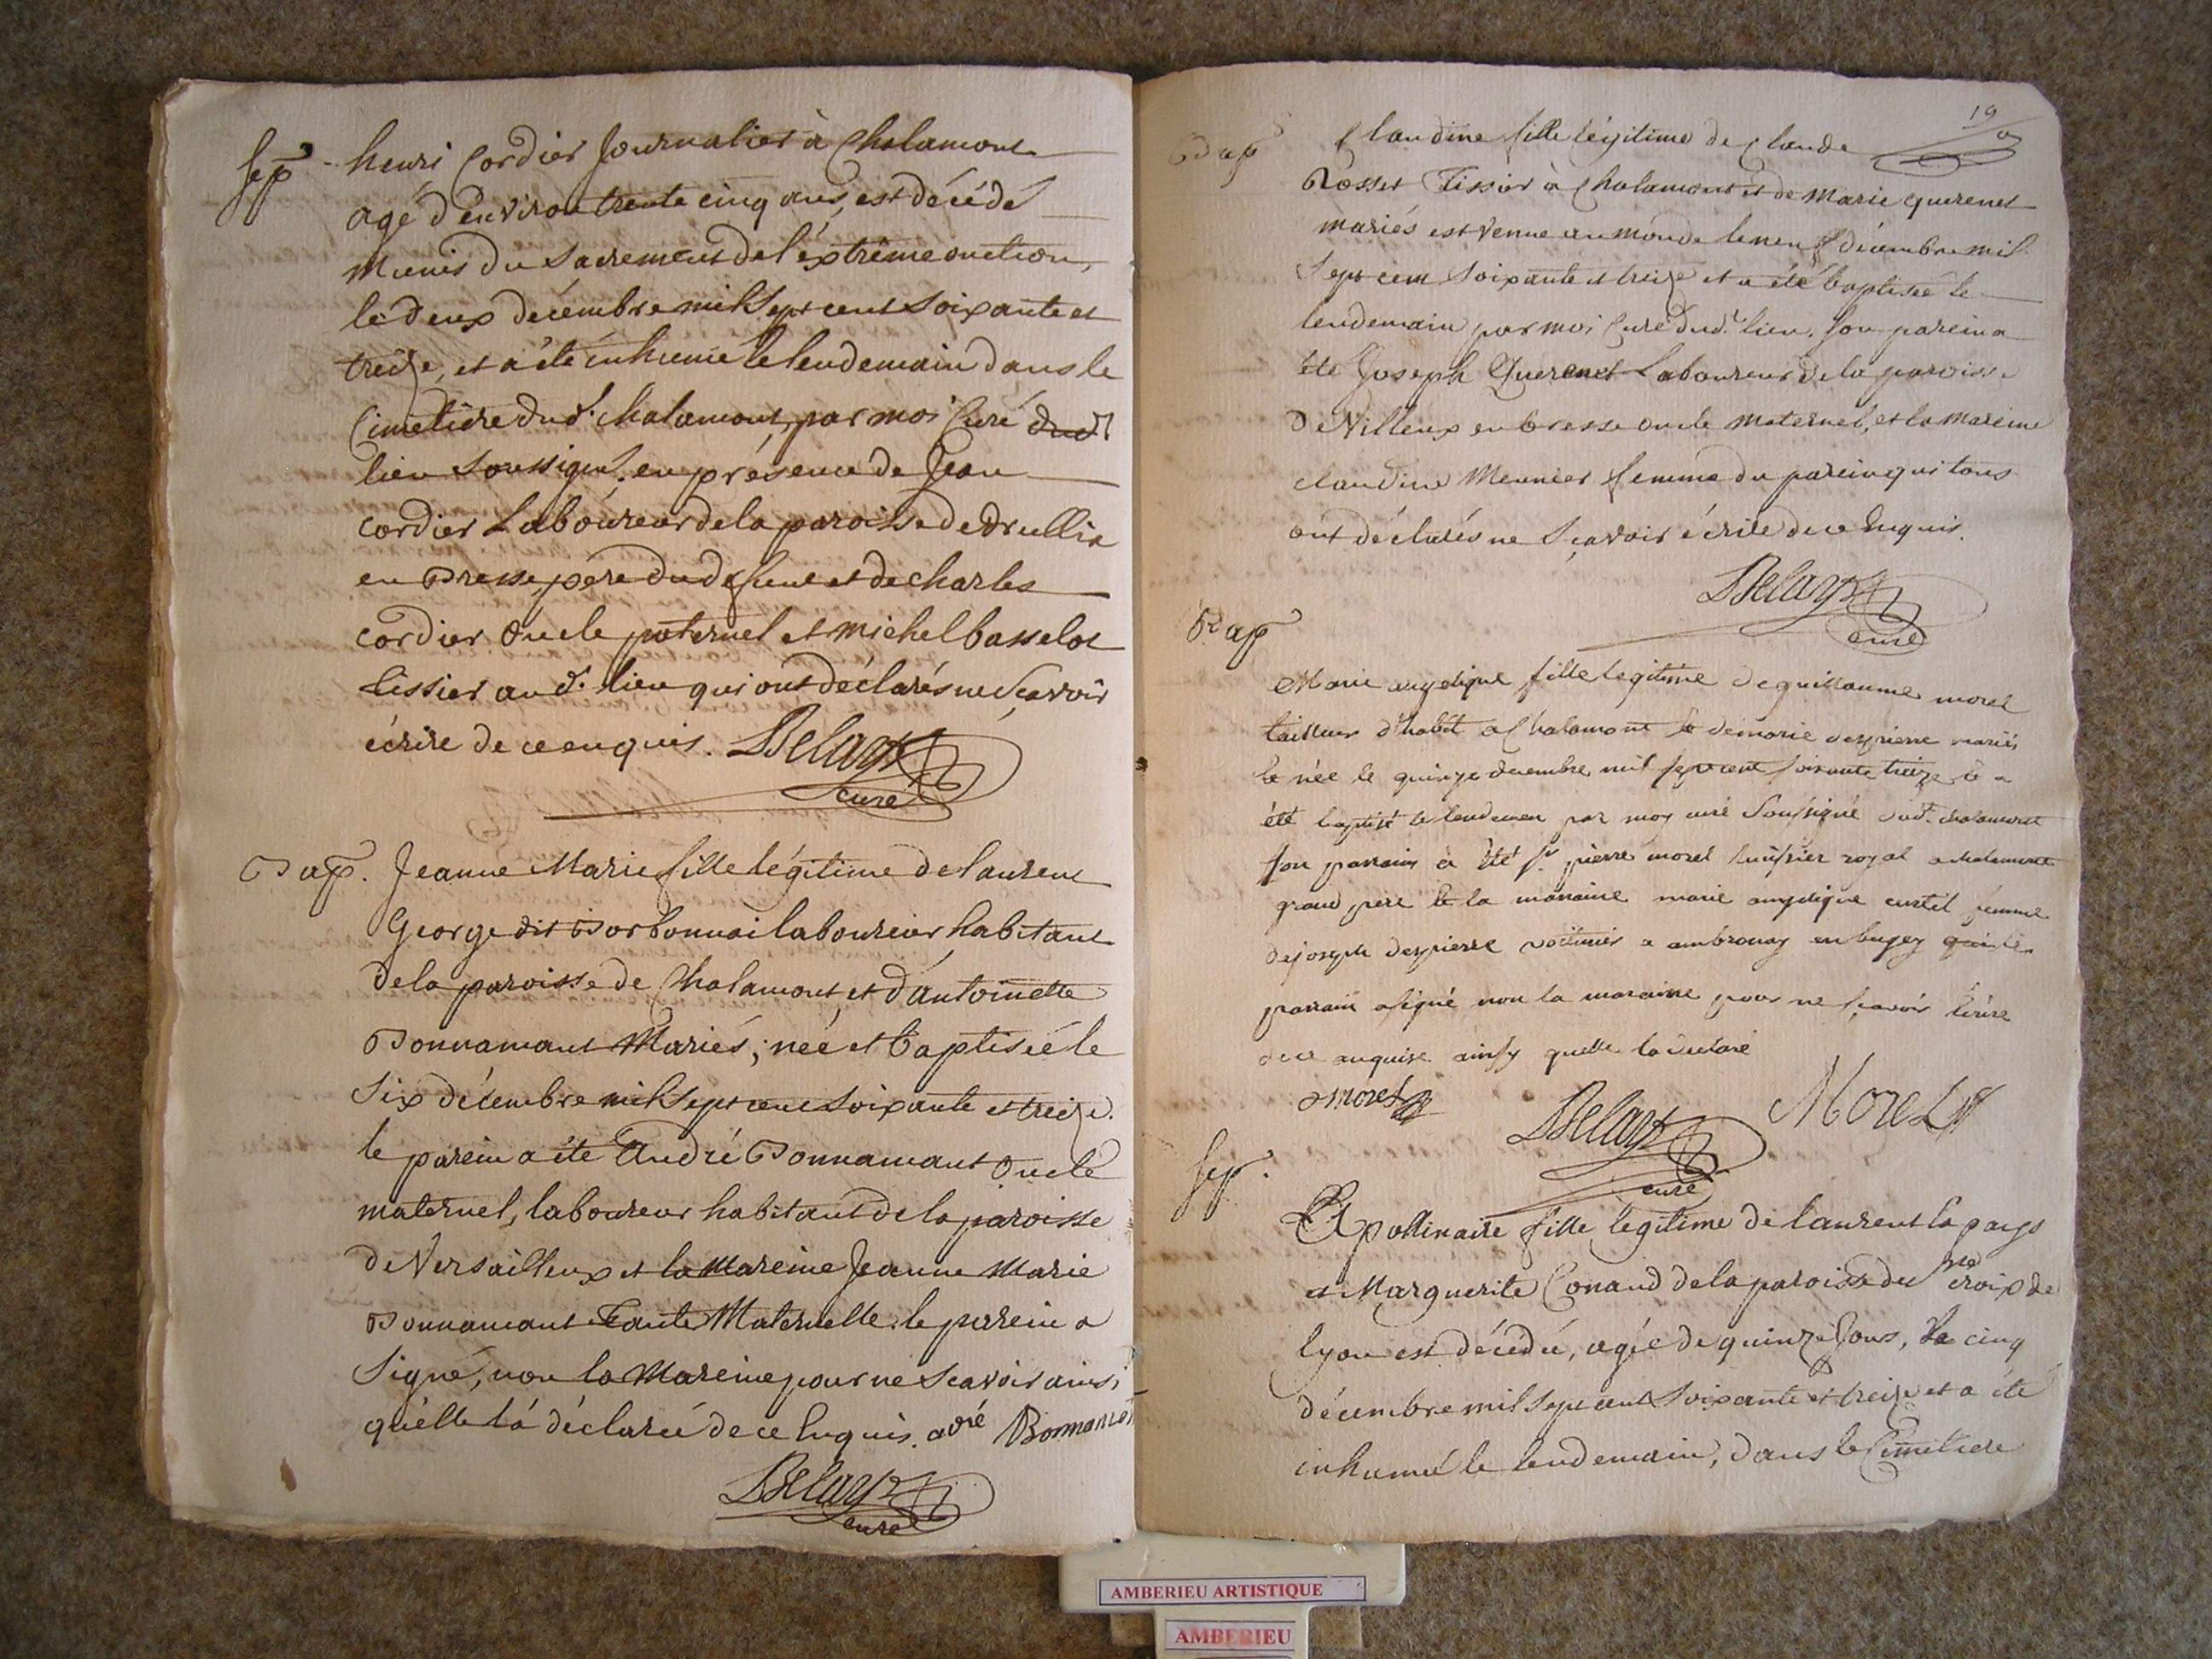 Sep henri Cordier Journalier à Chalamont
agé d'environ trente cinq ans, est décédé
munis du Sacrement de l'éxtrême onction,
le deux décembre mil Sept cent Soixante et
treize, et a été inhumé le lendemain dans le
Cimetiére dud. chalamont, par moi Curé dud
lieu Soussigné. en présence de Jean
cordier Laboureur de la paroisse de Drullia
en Bresse, pére du defunt et de charles
cordier Oncle paternel et michel basselot
tissier aud. lieu qui ont déclarés ne Sçavoir
écrire de ce enquis. Delaye
curé
Bap. Jeanne Marie fille légitime de laurent
George dit Borbonnai laboureur habitant
de la paroisse de Chalamont, et d'antoinette
Bonnamant Mariés; née et baptisée le
Six décembre mil Sept cent Soixante et treize.
le parein a été André Bonnamant Oncle
maternel, laboureur habitant de la paroisse
de Versailleux et la Mareine Jeanne Marie
Bonnamant Tante Maternelle. le parein a
Signé, non la Mareine pour ne Scavoir ainsi
quélle l'a déclarée de ce Enquis.
Delaye
curé
19
Bap Claudine fille légitime de Claude
Rosset Tissier à Chalamont et de Marie querenet
mariés est venue au monde le neuf décembre mil
Sept cent Soixante et treize et a été baptisée le
lendemain par moi Curé dud. lieu. Son parein a
été Joseph Querenet Laboureur de la paroisse
de Villeux en bresse oncle maternel, et la mareine
claudine Meunier femme du parein qui tous
ont déclarés ne Sçavoir écrire de ce Enquis.
Delaye
curé
Bap
Marie angelique fille legitime de guillaume morel
tailleur d'habit a Chalamont & de marie despierre mariés
née le quinze decembre mil sept cent soixante treize & a
été baptisé le lendemain par moy curé Soussigné dud. chalamont
son parrain a été sr. pierre morel huissier royal a chalamont
grand pere & la maraine marie angelique curtil femme
de joseph despierre a ambronay en bugey
parrain a signé non la maraine pour ne sçavoir
de ce enquise ainsy quelle la declaré
morel
Delaye
curé
Morel
Sep.
Apollinaire fille légitime de laurent
et Marguerite Conand de la paroisse de croix de
lyon est décédée, agée de quinze Jours, le cinq
décembre mil Sept cent Soixante et treize et a été
inhumée le lendemain, dans le Cimetiere
AMBERIEU ARTISTIQUE
AMBERIEU